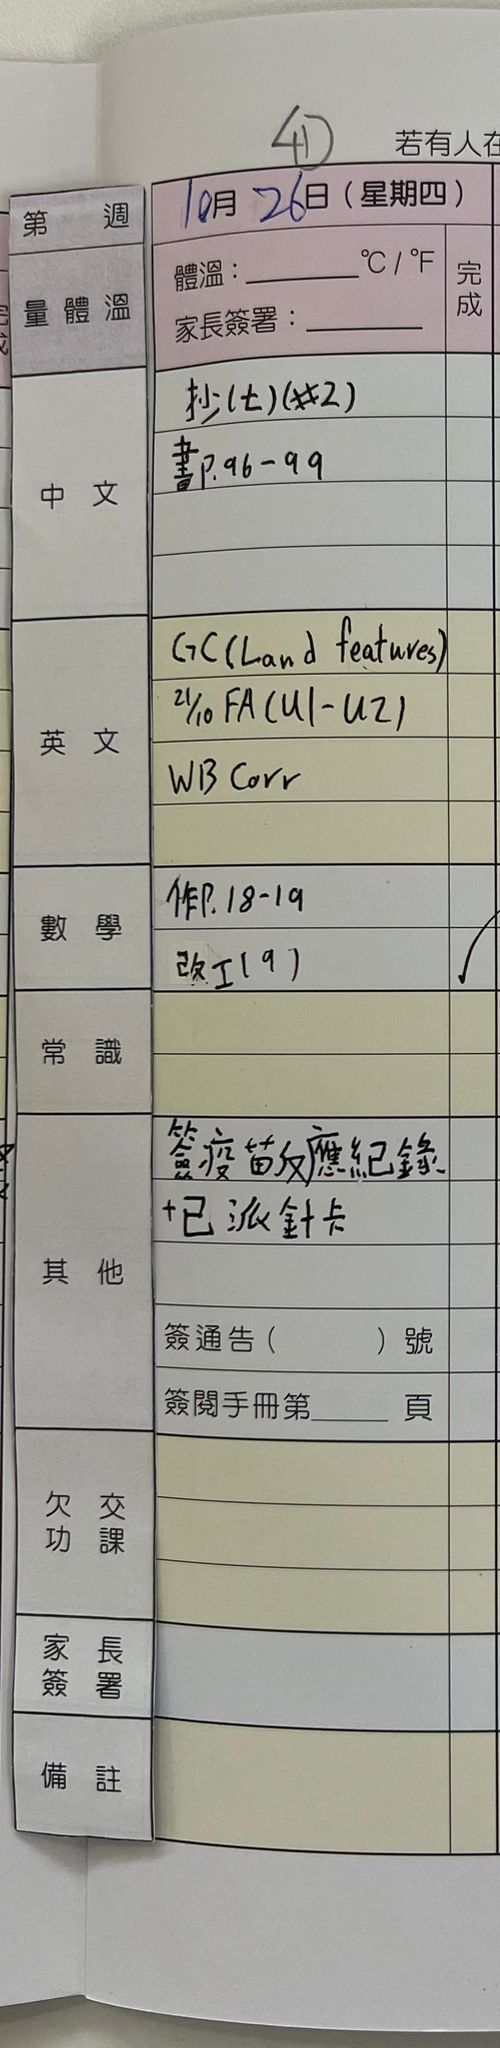 41
若有人在
第 週
10月 26日（星期四）
量體溫
體溫：______°C / °F
完成
家長簽署：______
中文
抄(七)(#2)
書P.96-99
英文
GC(Land features)
21/10 FA(U1-U2)
WB Corr
數學
作P.18-19
改工(9)
常識
其他
簽疫苗反應紀錄
+已派針卡
簽通告（ ）號
簽閱手冊第______頁
欠交功課
家長簽署
備註